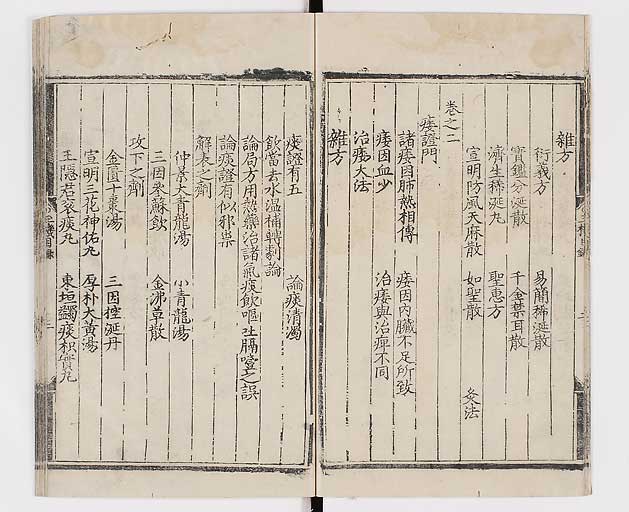 雜方
衍義方 易簡稀涎散
寶鑑分涎散 千金葉耳散
濟生稀涎丸 聖惠方
宣明防風天麻散 如聖散 灸法
卷之二
痿證門
諸痿因肺熱相傳 痿因內臟不足所致
痿因血少 治痿與治痺不同
治痿大法
雜方
痰證有五 論痰清濁
飲當去水溫補轉劑論
論局方用熱藥治諸氣痰飲嘔吐膈噎之誤
論痰證有似邪祟
解表之劑
仲景大青龍湯 小青龍湯
三因參蘇飲 金沸草散
攻下之劑
金匱十棗湯 三因控涎丹
宣明三花神佑丸 厚朴大黃湯
王隱君衮痰丸 東垣蠲痰枳實丸